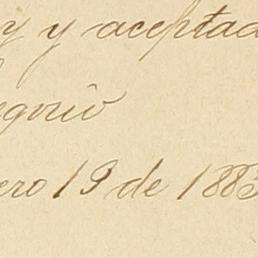 y y aceptad
egorio
ero 19 de 1883